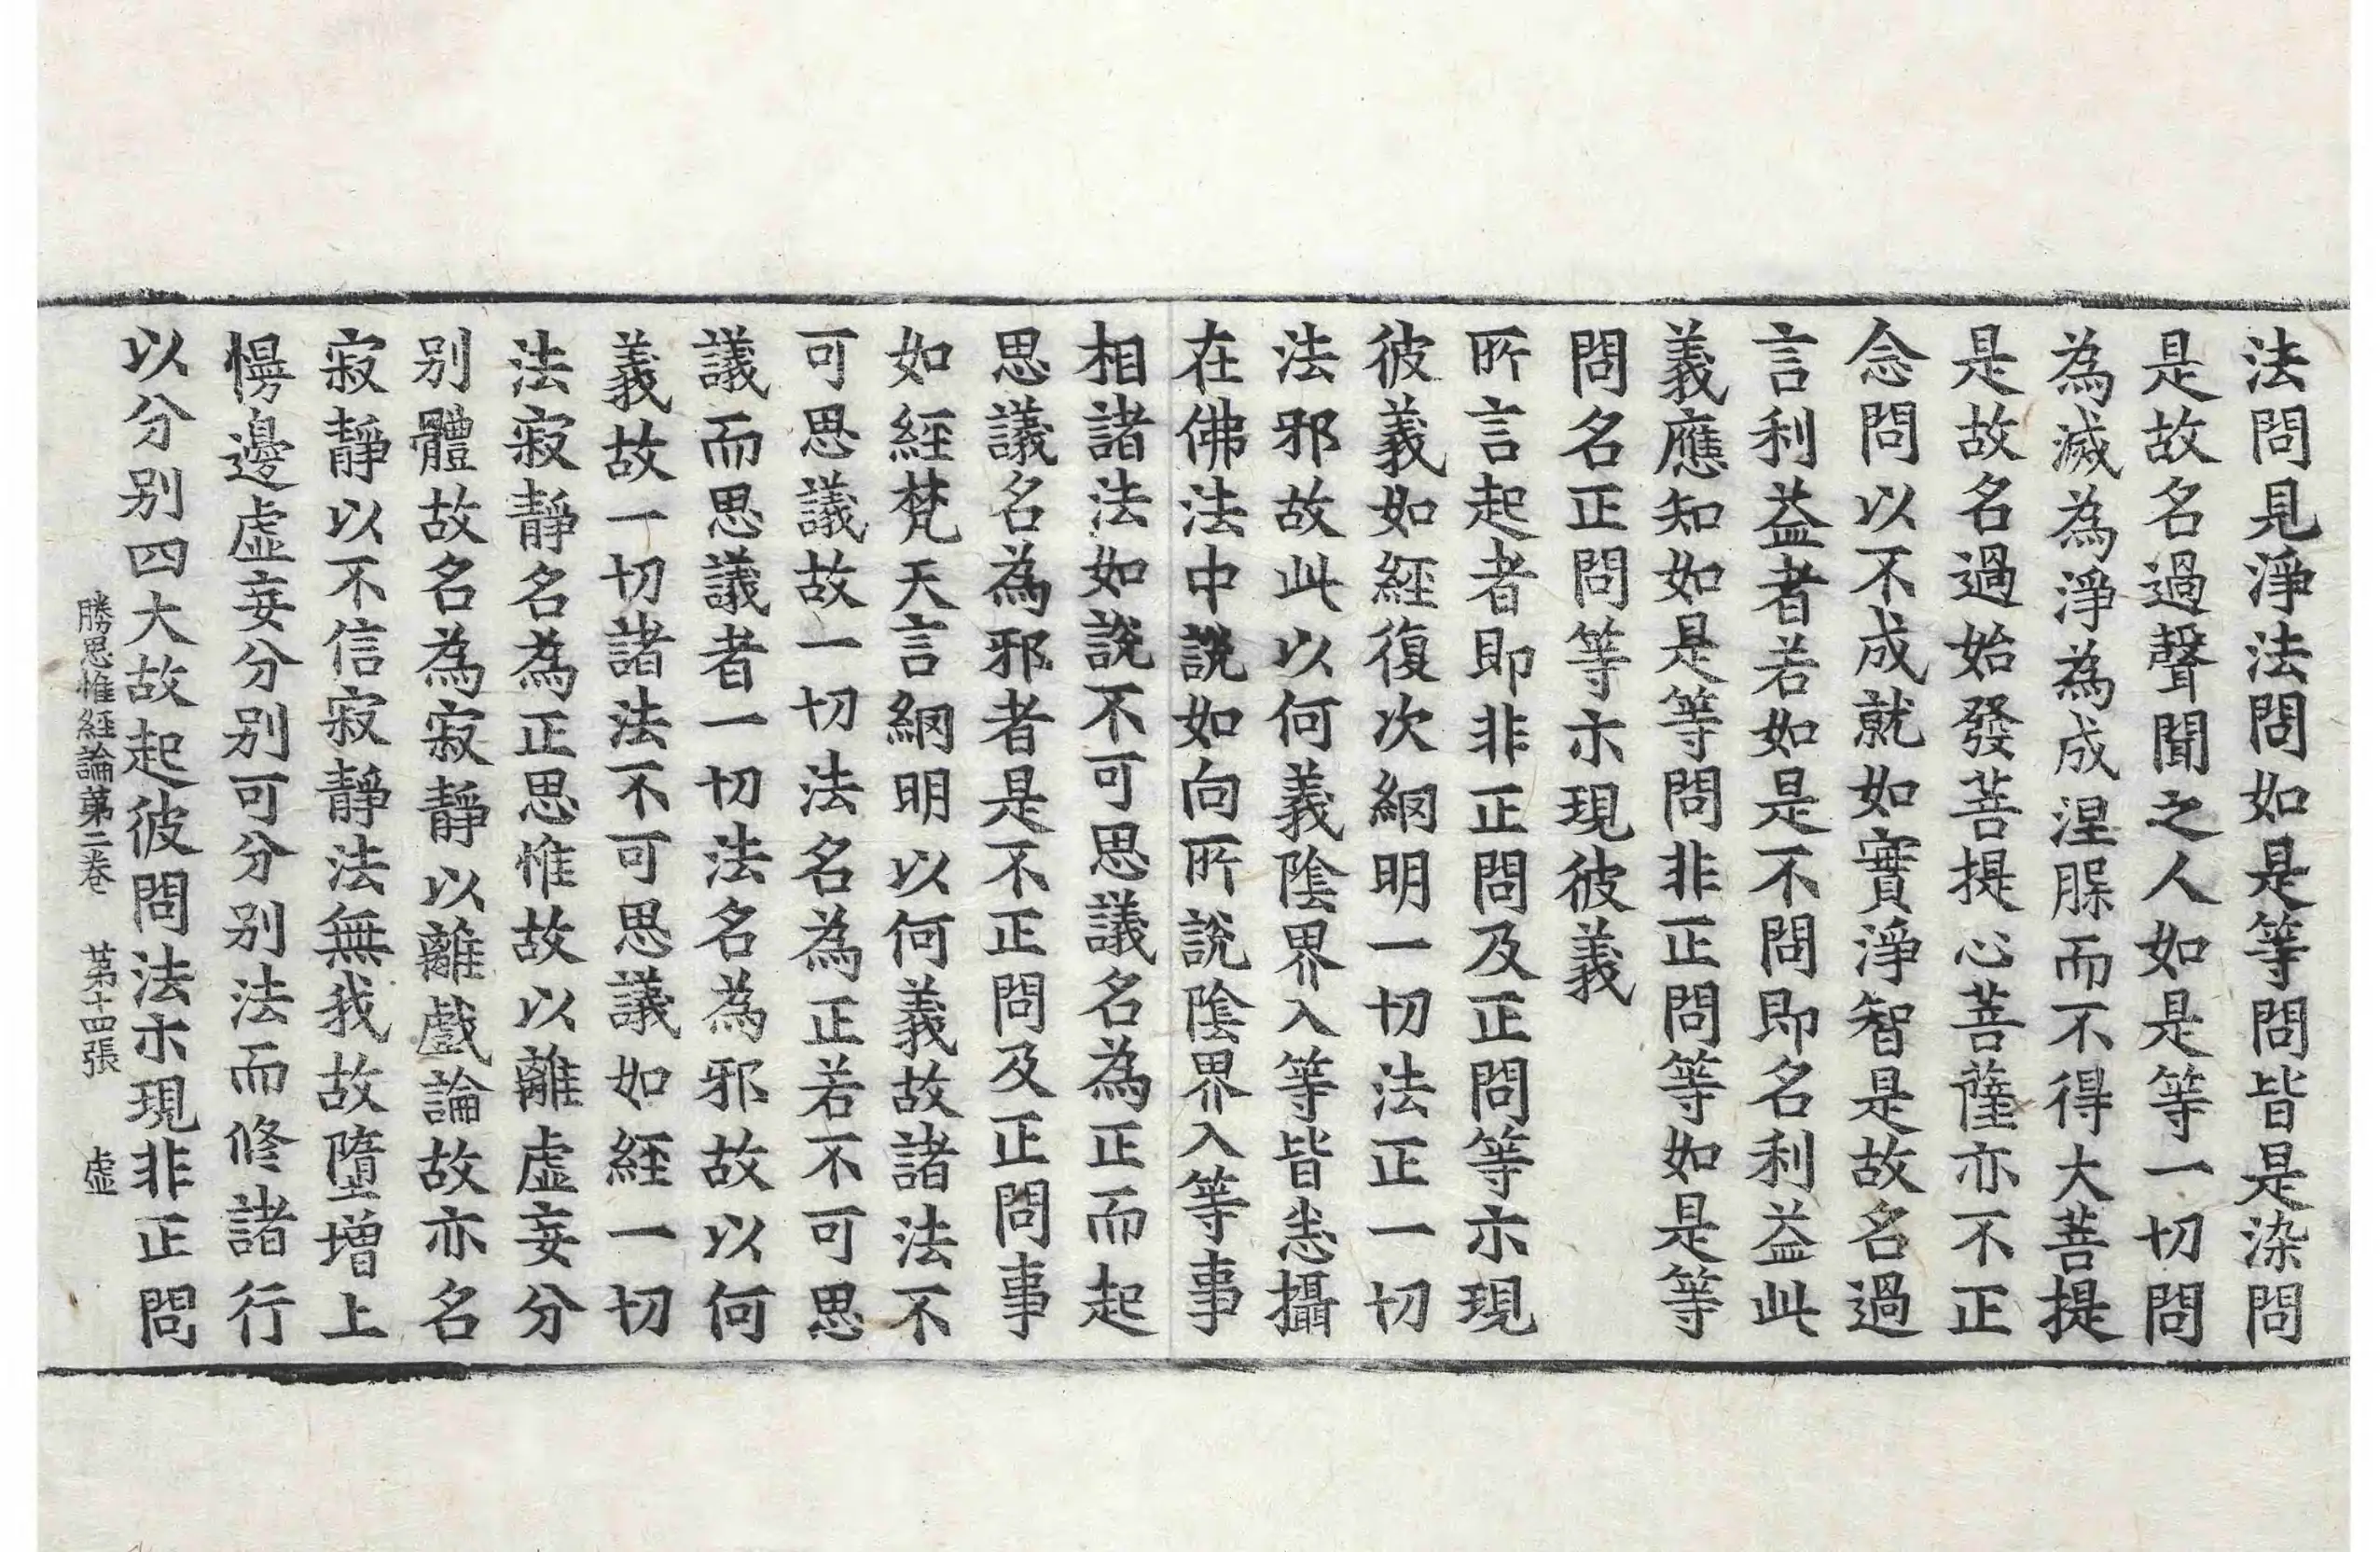 法問見淨法問如是等問皆是染問
是故名過聲聞之人如是等一切問
為滅為淨為成涅脲而不得大菩提
是故名過始發菩提心菩薩亦不正
念問以不成就如實淨智是故名過
言利益者若如是不問即名利益此
義應知如是等問非正問等如是等
問名正問等示現彼義
所言起者即非正問及正問等示現
彼義如經復次網明一切法正一切
法邪故此以何義陰界入等皆悉攝
在佛法中說如向所說陰界入等事
相諸法如說不可思議名為正而起
思議名為邪者是不正問及正問事
如經梵天言網明以何義故諸法不
可思議故一切法名為正若不可思
議而思議者一切法名為邪故以何
義故一切諸法不可思議如經一切
法寂靜名為正思惟故以離虛妄分
別體故名為寂靜以離戲論故亦名
寂靜以不信寂靜法無我故墮增上
慢邊虛妄分別可分別法而修諸行
以分別四大故起彼問法示現非正問
勝思惟經論第二卷 第十四張 虛